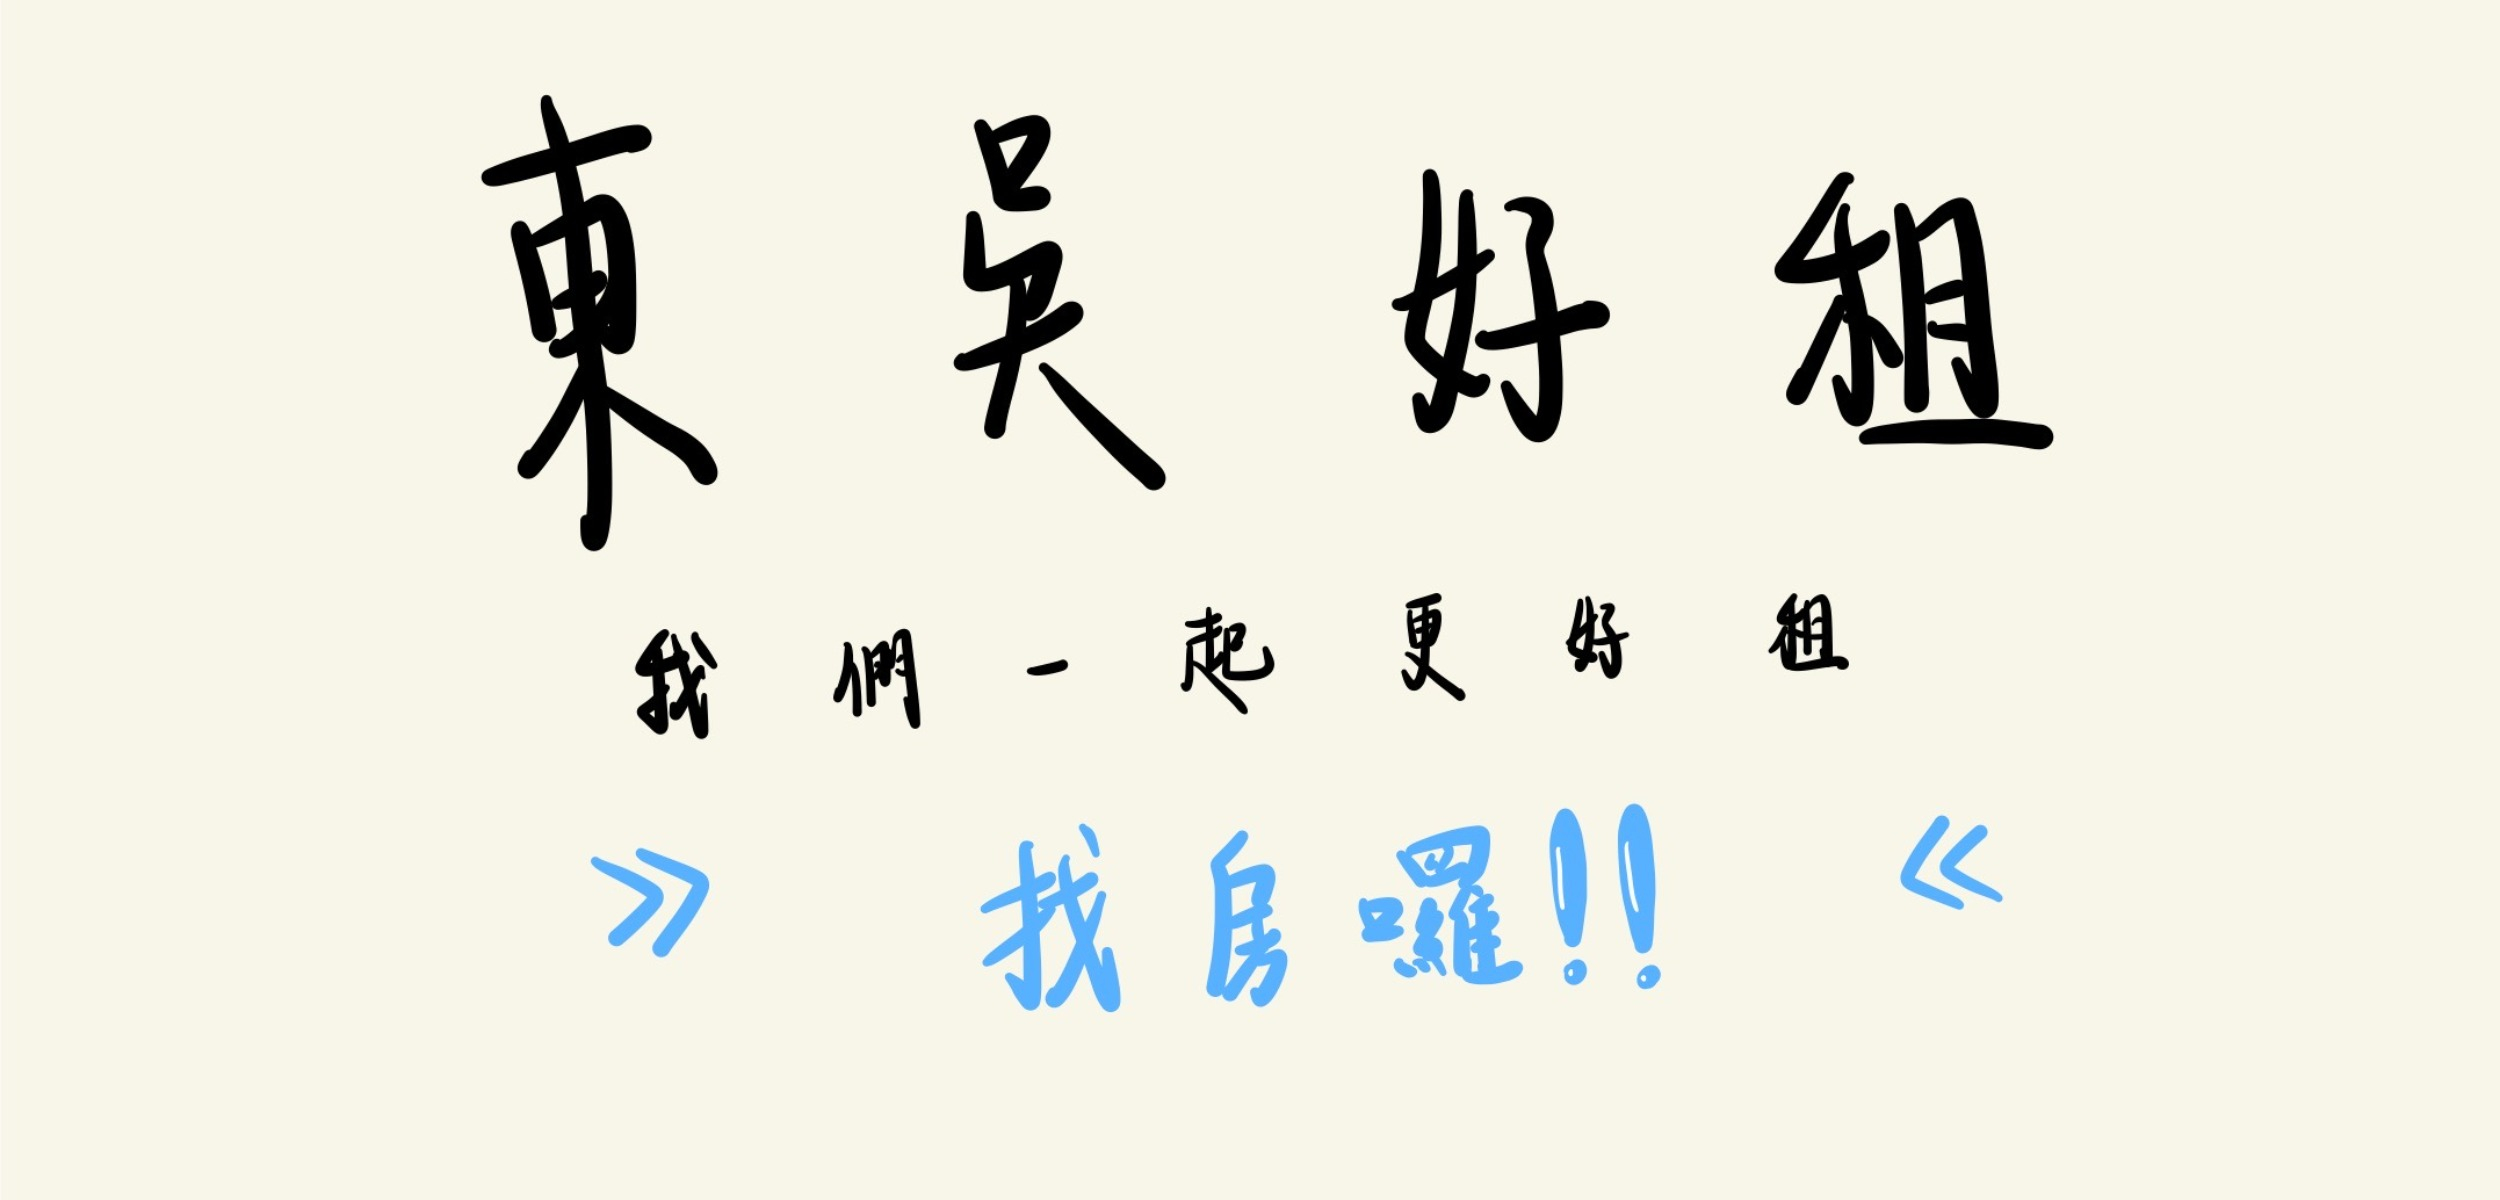 東吳好租
我們一起更好租
>> 找房囉!! <<